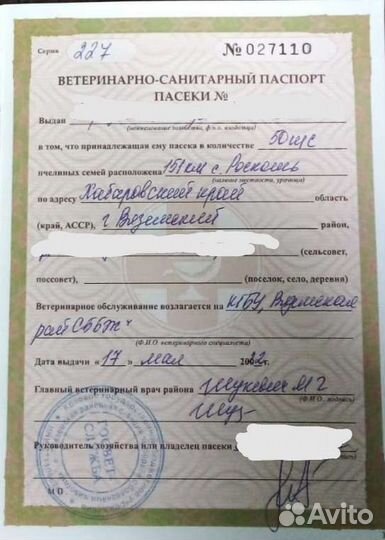 Серия 227 № 027110
ВЕТЕРИНАРНО-САНИТАРНЫЙ ПАСПОРТ
ПАСЕКИ №
Выдан
(наименование хозяйства, ф.и.о. владельца)
в том, что принадлежащая ему пасека в количестве 50 шс
пчелиных семей расположена 151 км с. Роскошь
(название местности, урочища)
по адресу Хабаровский край область
(край, АССР), г Вяземский район,
(сельсовет,
поссовет), (поселок, село, деревня)
Ветеринарное обслуживание возлагается на КГБУ „Вяземская
рай СББЖ"
(Ф.И.О. ветеринарного специалиста)
Дата выдачи «17» мая г.
Главный ветеринарный врач района
(Ф.И.О., подпись)
Руководитель хозяйства или владелец пасеки
ГОСВЕТ
СЛУЖБА
М П
Avito